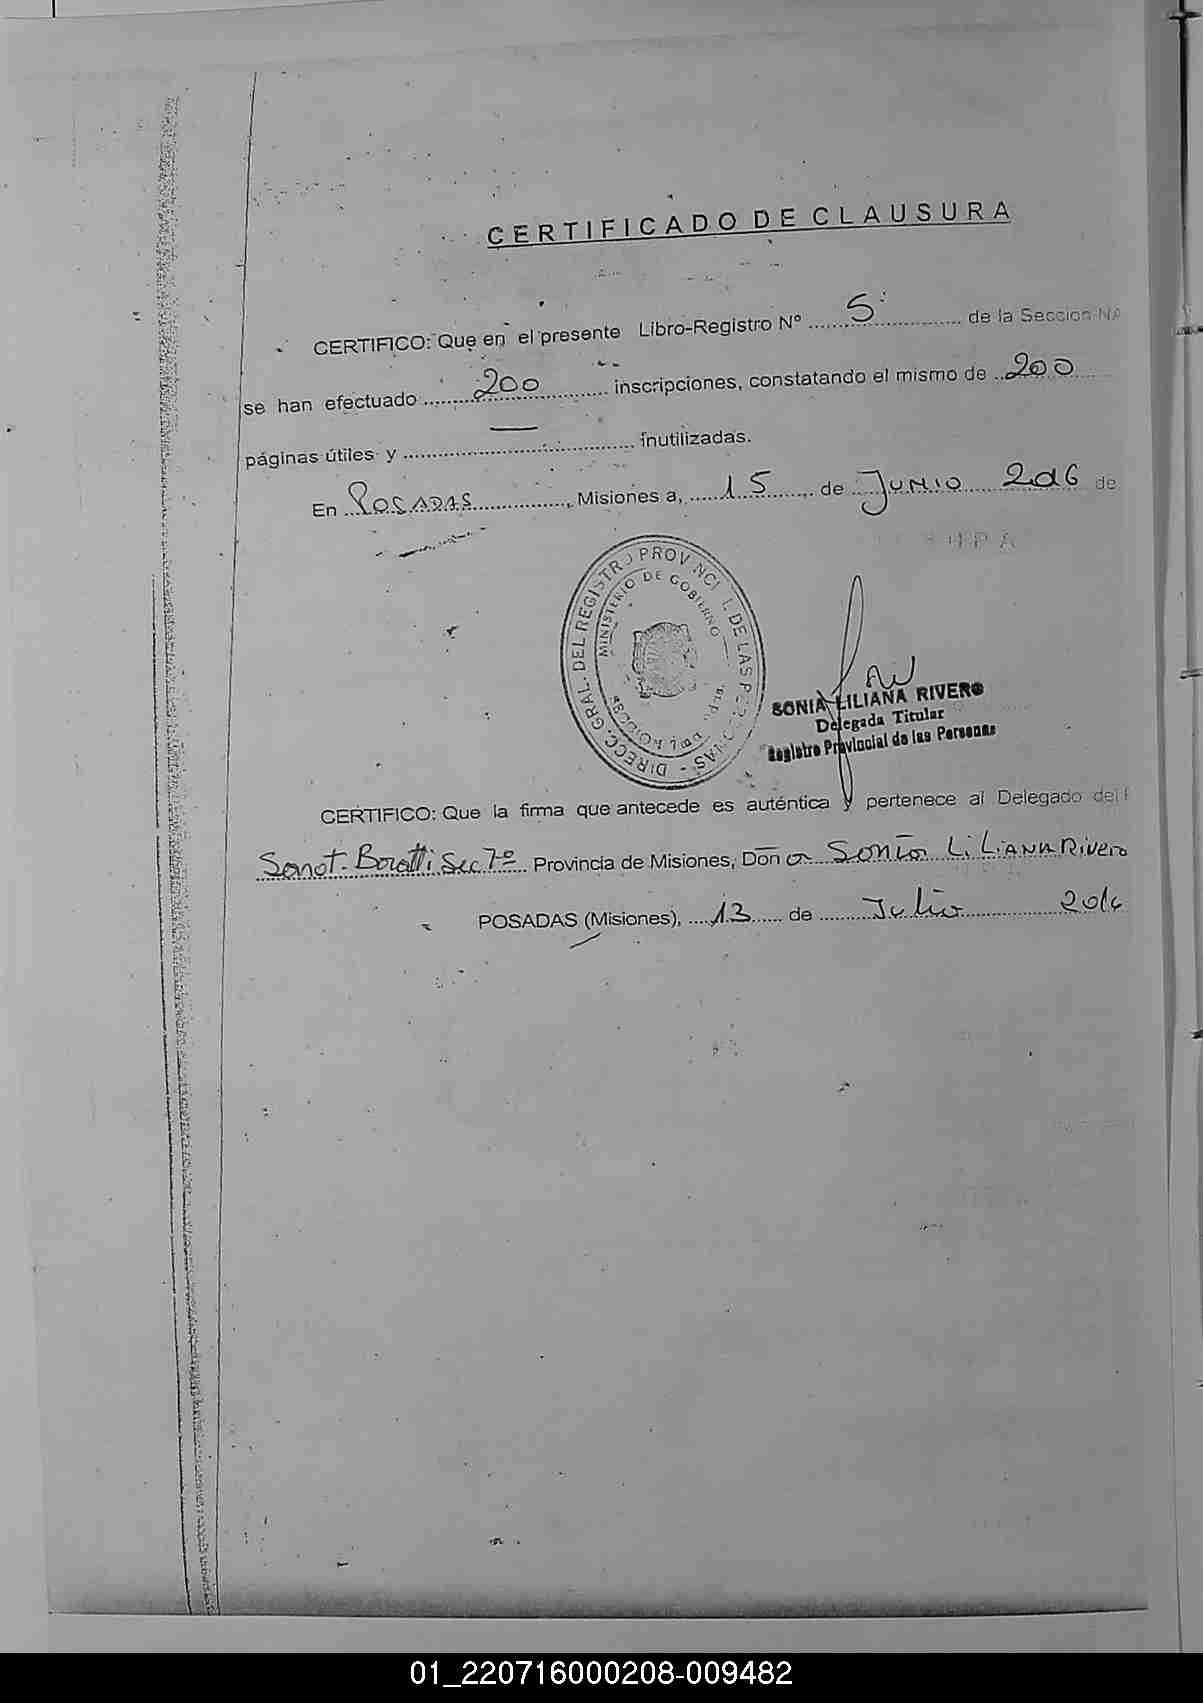 CERTIFICADO DE CLAUSURA
CERTIFICO: Que en el presente Libro-Registro Nº 5 de la Seccion NA
se han efectuado 200 inscripciones, constatando el mismo de 200
páginas útiles y — inutilizadas.
En POSADAS, Misiones a, 15 de JUNIO 2016 de
DIRECC. GRAL. DEL REGISTRO PROVINCIAL DE LAS PERSONAS -
MINISTERIO DE GOBIERNO
SONIA LILIANA RIVERO
Delegada Titular
Registro Provincial de las Personas
CERTIFICO: Que la firma que antecede es auténtica y pertenece al Delegado del
Sanat. Boratti Sec 7º Provincia de Misiones, Don a Sonia LiLiANA Rivero
POSADAS (Misiones), 13 de Julio 2016
01_220716000208-009482